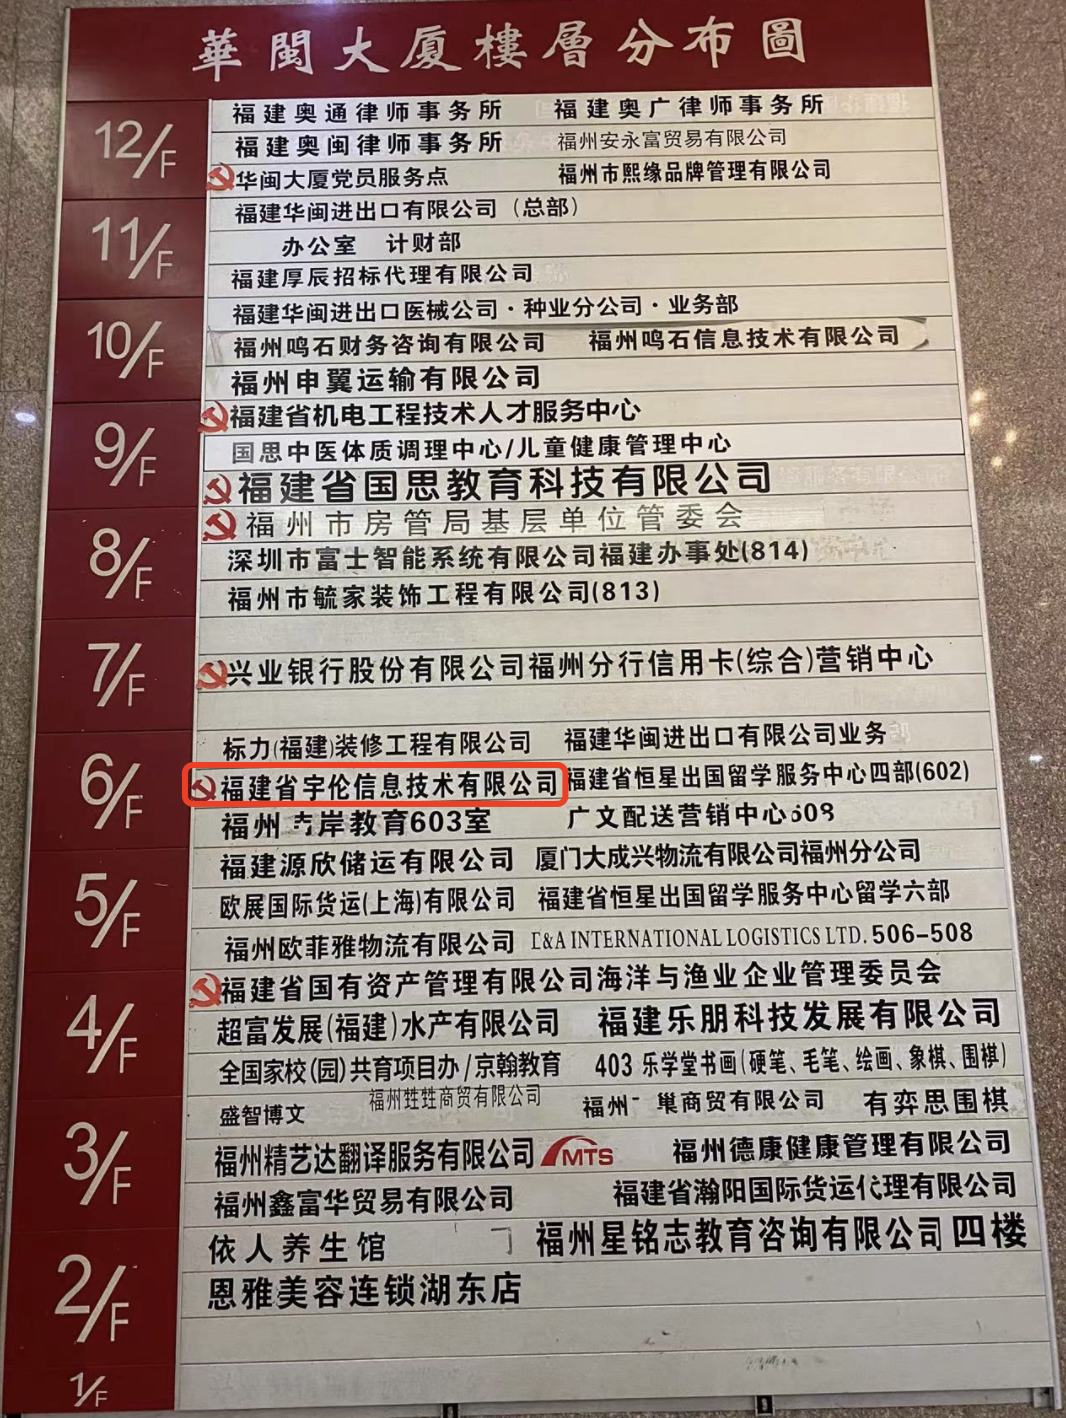 華閩大厦樓層分布圖
12/F
福建奥通律师事务所 福建奥广律师事务所
福建奥闽律师事务所 福州安永富贸易有限公司
华闽大厦党员服务点 福州市熙缘品牌管理有限公司
11/F
福建华闽进出口有限公司（总部）
办公室 计财部
福建厚辰招标代理有限公司
10/F
福建华闽进出口医械公司·种业分公司·业务部
福州鸣石财务咨询有限公司 福州鸣石信息技术有限公司
福州申翼运输有限公司
9/F
福建省机电工程技术人才服务中心
国思中医体质调理中心/儿童健康管理中心
福建省国思教育科技有限公司
8/F
福州市房管局基层单位管委会
深圳市富士智能系统有限公司福建办事处(814)
福州市毓家装饰工程有限公司(813)
7/F
兴业银行股份有限公司福州分行信用卡(综合)营销中心
6/F
标力(福建)装修工程有限公司 福建华闽进出口有限公司业务
福建省宇伦信息技术有限公司 福建省恒星出国留学服务中心四部(602)
福州 岸教育603室 广文配送营销中心608
5/F
福建源欣储运有限公司 厦门大成兴物流有限公司福州分公司
欧展国际货运(上海)有限公司 福建省恒星出国留学服务中心留学六部
福州欧菲雅物流有限公司 E&A INTERNATIONAL LOGISTICS LTD. 506-508
4/F
福建省国有资产管理有限公司海洋与渔业企业管理委员会
超富发展(福建)水产有限公司 福建乐朋科技发展有限公司
全国家校(园)共育项目办/京翰教育 403 乐学堂书画(硬笔、毛笔、绘画、象棋、围棋)
3/F
盛智博文 福州甡甡商贸有限公司 福州 巢商贸有限公司 有弈思围棋
福州精艺达翻译服务有限公司 MTS 福州德康健康管理有限公司
福州鑫富华贸易有限公司 福建省瀚阳国际货运代理有限公司
2/F
依人养生馆 福州星铭志教育咨询有限公司四楼
恩雅美容连锁湖东店
1/F